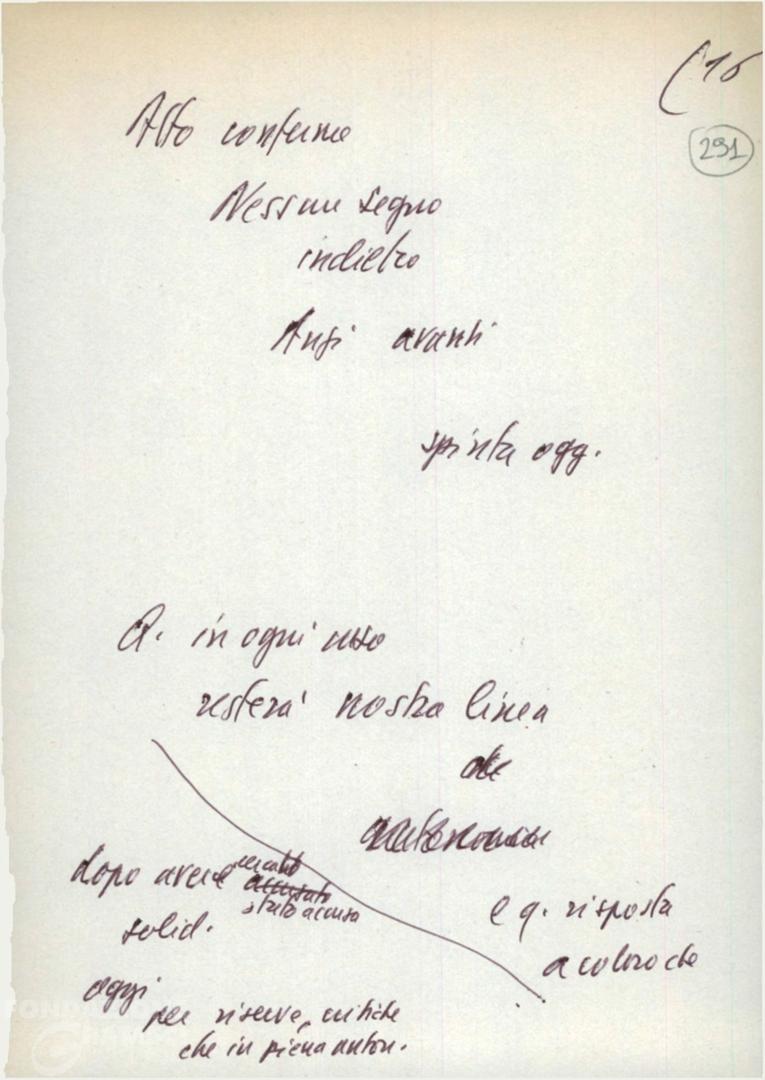 (16
291
Atto conferme
Nessun segno
indietro
Anzi avanti
spinta ogg.
Q. in ogni caso
resterà nostra linea
de
autonomia
dopo avere
accusato
stato accusa
solid.
e q. risposta
a coloro che
oggi
per riserve, critiche
che in piena auton.
FONDAZIO